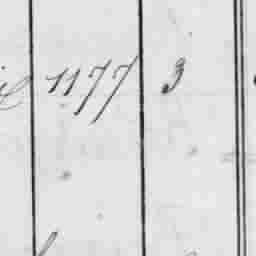 1177 3